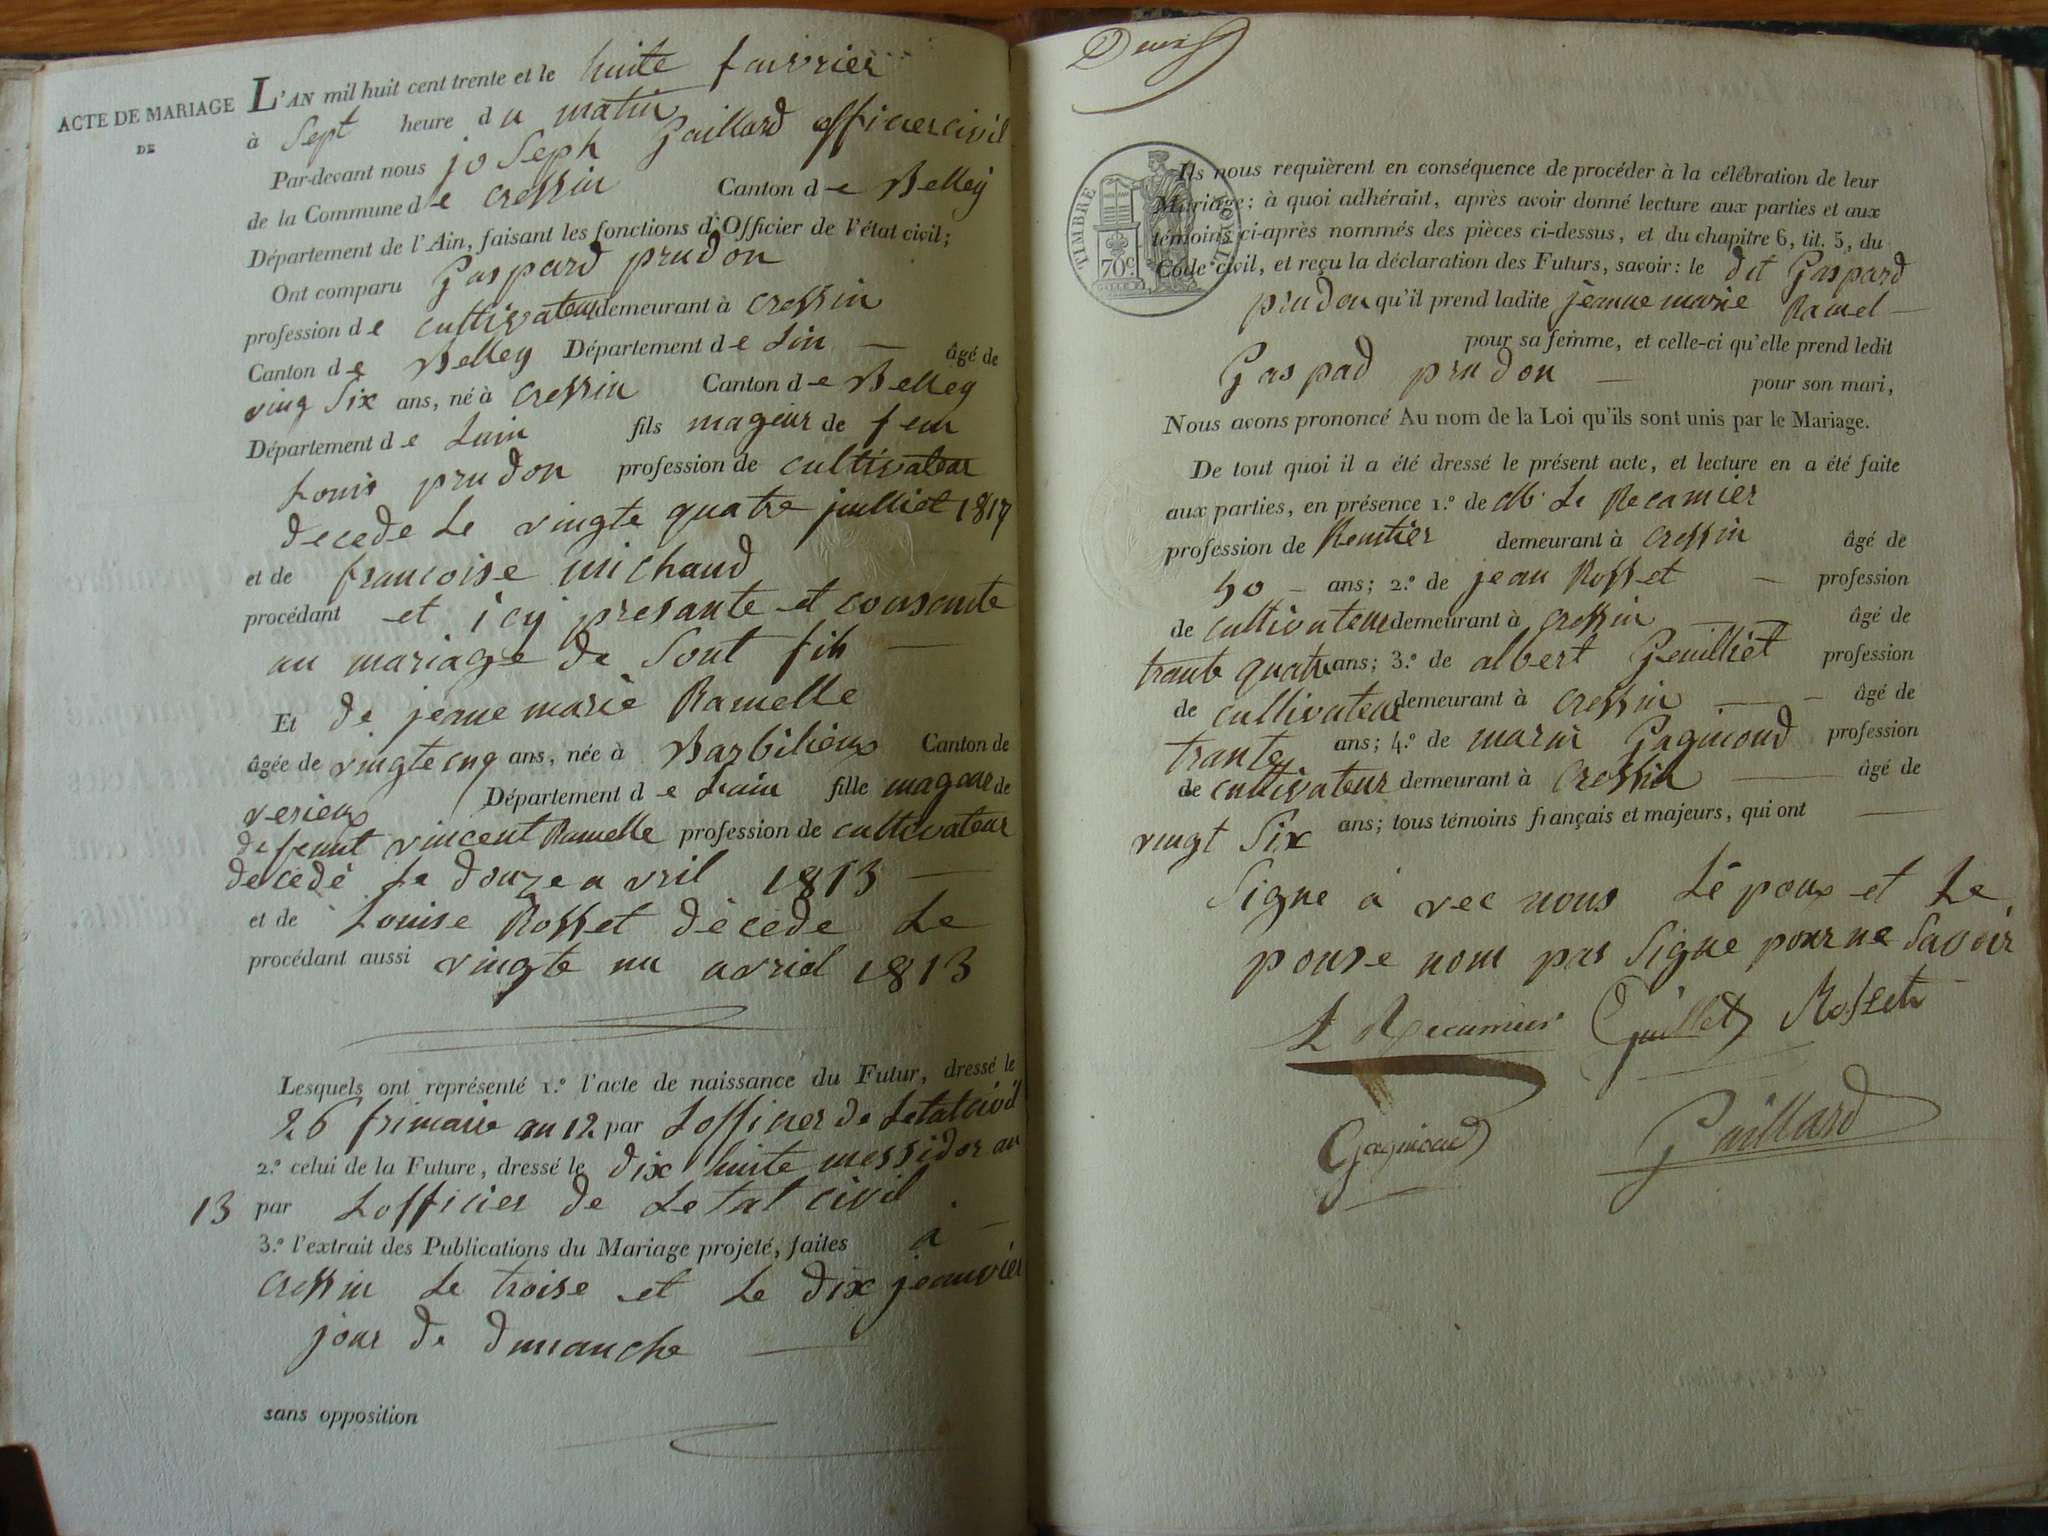 ACTE DE MARIAGE
DE
L'AN mil huit cent trente et le huite fauvrier
à Sept heure du matin
Par-devant nous joSeph Gaillard officier civil
de la Commune de Cressin Canton de Belley
Département de l'Ain, faisant les fonctions d'Officier de l'état civil;
Ont comparu Gaspard prudon
profession de cultivateur demeurant à Cressin
Canton de Belley Département de Lin — âgé de
ving Six ans, né à Cressin Canton de Belley
Département de Lain fils mageur de feu
Louis prudon profession de cultivateur
decede Le vingte quatre julliet 1817
et de francoise michaud
procédant et icy presante et consante
au mariage de Sont fih —
Et de jeanne marie Ramelle
âgée de vingte cnq ans, née à Barbilieux Canton de
verieux Département de Lain fille mageure de
defeunt vincent Ramelle profession de cultivateur
decede Le douze avril 1813 —
et de Louise Rosset décede Le
procédant aussi vingte un avriel 1813
Lesquels ont représenté 1.º l'acte de naissance du Futur, dressé le
26 frimaire an 12 par Lofficier de Letat civil
2.º celui de la Future, dressé le dix huite messidor an
13 par Lofficier de Letat civil
3.º l'extrait des Publications du Mariage projeté, faites à —
Cressin Le troise et Le dix jeanvier
jour de dimanche —
sans opposition
TIMBRE ROYAL
70c
Ils nous requièrent en conséquence de procéder à la célébration de leur
Mariage; à quoi adhérant, après avoir donné lecture aux parties et aux
témoins ci-après nommés des pièces ci-dessus, et du chapitre 6, tit. 5, du
Code civil, et reçu la déclaration des Futurs, savoir: le dit Gaspard
prudon qu'il prend ladite jeanne marie Ramel —
pour sa femme, et celle-ci qu'elle prend ledit
Gaspad prudon — pour son mari,
Nous avons prononcé Au nom de la Loi qu'ils sont unis par le Mariage.
De tout quoi il a été dressé le présent acte, et lecture en a été faite
aux parties, en présence 1.º de Mr Le Recamier
profession de Rentier demeurant à Cressin âgé de
50 — ans; 2.º de jean Rosset — profession
de cultivateur demeurant à Cressin — âgé de
trante quatre ans; 3.º de albert Geuilliet profession
de cultivateur demeurant à Cressin — âgé de
trante ans; 4.º de marin Gagnioud profession
de cultivateur demeurant à Cressin — âgé de
vingt Six ans; tous témoins français et majeurs, qui ont —
Signe a vec nous Lé poux et Le
pouse nom pas Signe pour ne Savoir
L Recamier Guillet Rosset
Gagnioud Gaillard